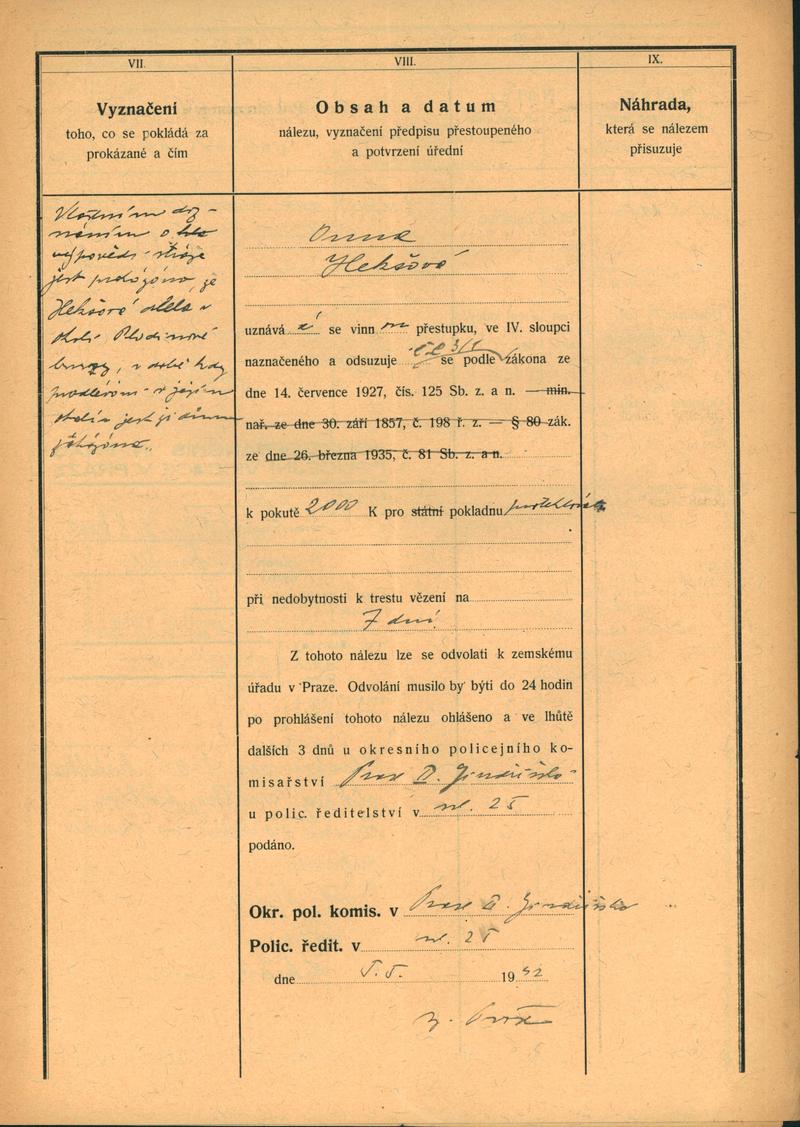 VII.
Vyznačení
toho, co se pokládá za
prokázané a čím
Vlastním doz-
náním o
výpovědi stráže
jest prokázáno, že
Hekšová dlela v
okolí Plodinové
burzy, v době kdy
v jejím
okolí jest židům
VIII.
Obsah a datum
nálezu, vyznačení předpisu přestoupeného
a potvrzení úřední
Anna
Hekšová
uznává se vinn ou přestupku, ve IV. sloupci
naznačeného a odsuzuje čl. 3/1 se podle zákona ze
dne 14. července 1927, čís. 125 Sb. z. a n. — min.
nař. ze dne 30. září 1857, č. 198 ř. z. — § 80 zák.
ze dne 26. března 1935, č. 81 Sb. z. a n.
k pokutě 2000 K pro státní pokladnu
při nedobytnosti k trestu vězení na
7 dní
Z tohoto nálezu lze se odvolati k zemskému
úřadu v Praze. Odvolání musilo by býti do 24 hodin
po prohlášení tohoto nálezu ohlášeno a ve lhůtě
dalších 3 dnů u okresního policejního ko-
misařství Praze II. Jindřišská
u polic. ředitelství v ul. 25
podáno.
Okr. pol. komis. v Praze II. Jindřišská
Polic. ředit. v ul. 25
dne 5.5. 1942
IX.
Náhrada,
která se nálezem
přisuzuje